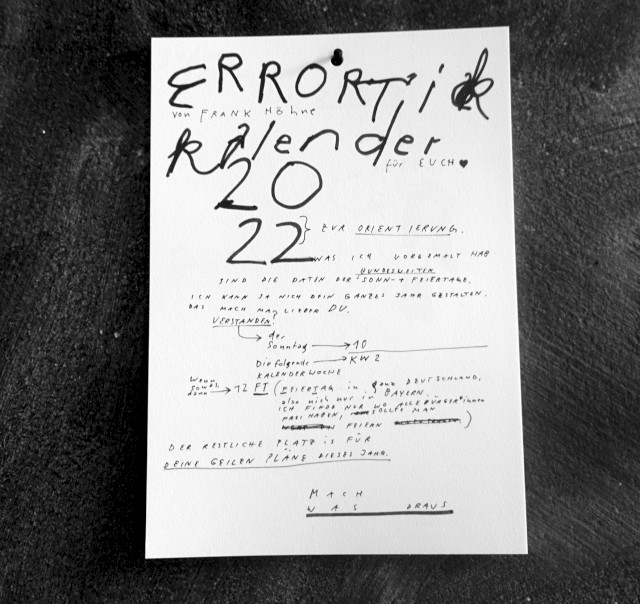 ERRORTIK
von FRANK Höhne
kalender
für EUCH ♥
20
22 } ZUR ORIENTIERUNG.
WAS ICH VORGEMALT HAB
SIND DIE DATEN DER BUNDESWEITEN SONN- + FEIERTAGE.
ICH KANN JA NICH DEIN GANZES JAHR GESTALTEN.
DAS MACH MAL LIEBER DU.
VERSTANDEN?
der
Sonntag → 10
Die folgende → KW 2
KALENDERWOCHE
wenn
sowas
dann → 12 FT (FEIERTAG in ganz DEUTSCHLAND,
also nich nur in BAYERN.
ICH FINDE NUR WO ALLE BÜRGER*innen
FREI HABEN, SOLLTE MAN
FEIERN)
DER RESTLICHE PLATZ iS FÜR
DEINE GEILEN PLÄNE DIESES JAHR.
MACH
WAS DRAUS